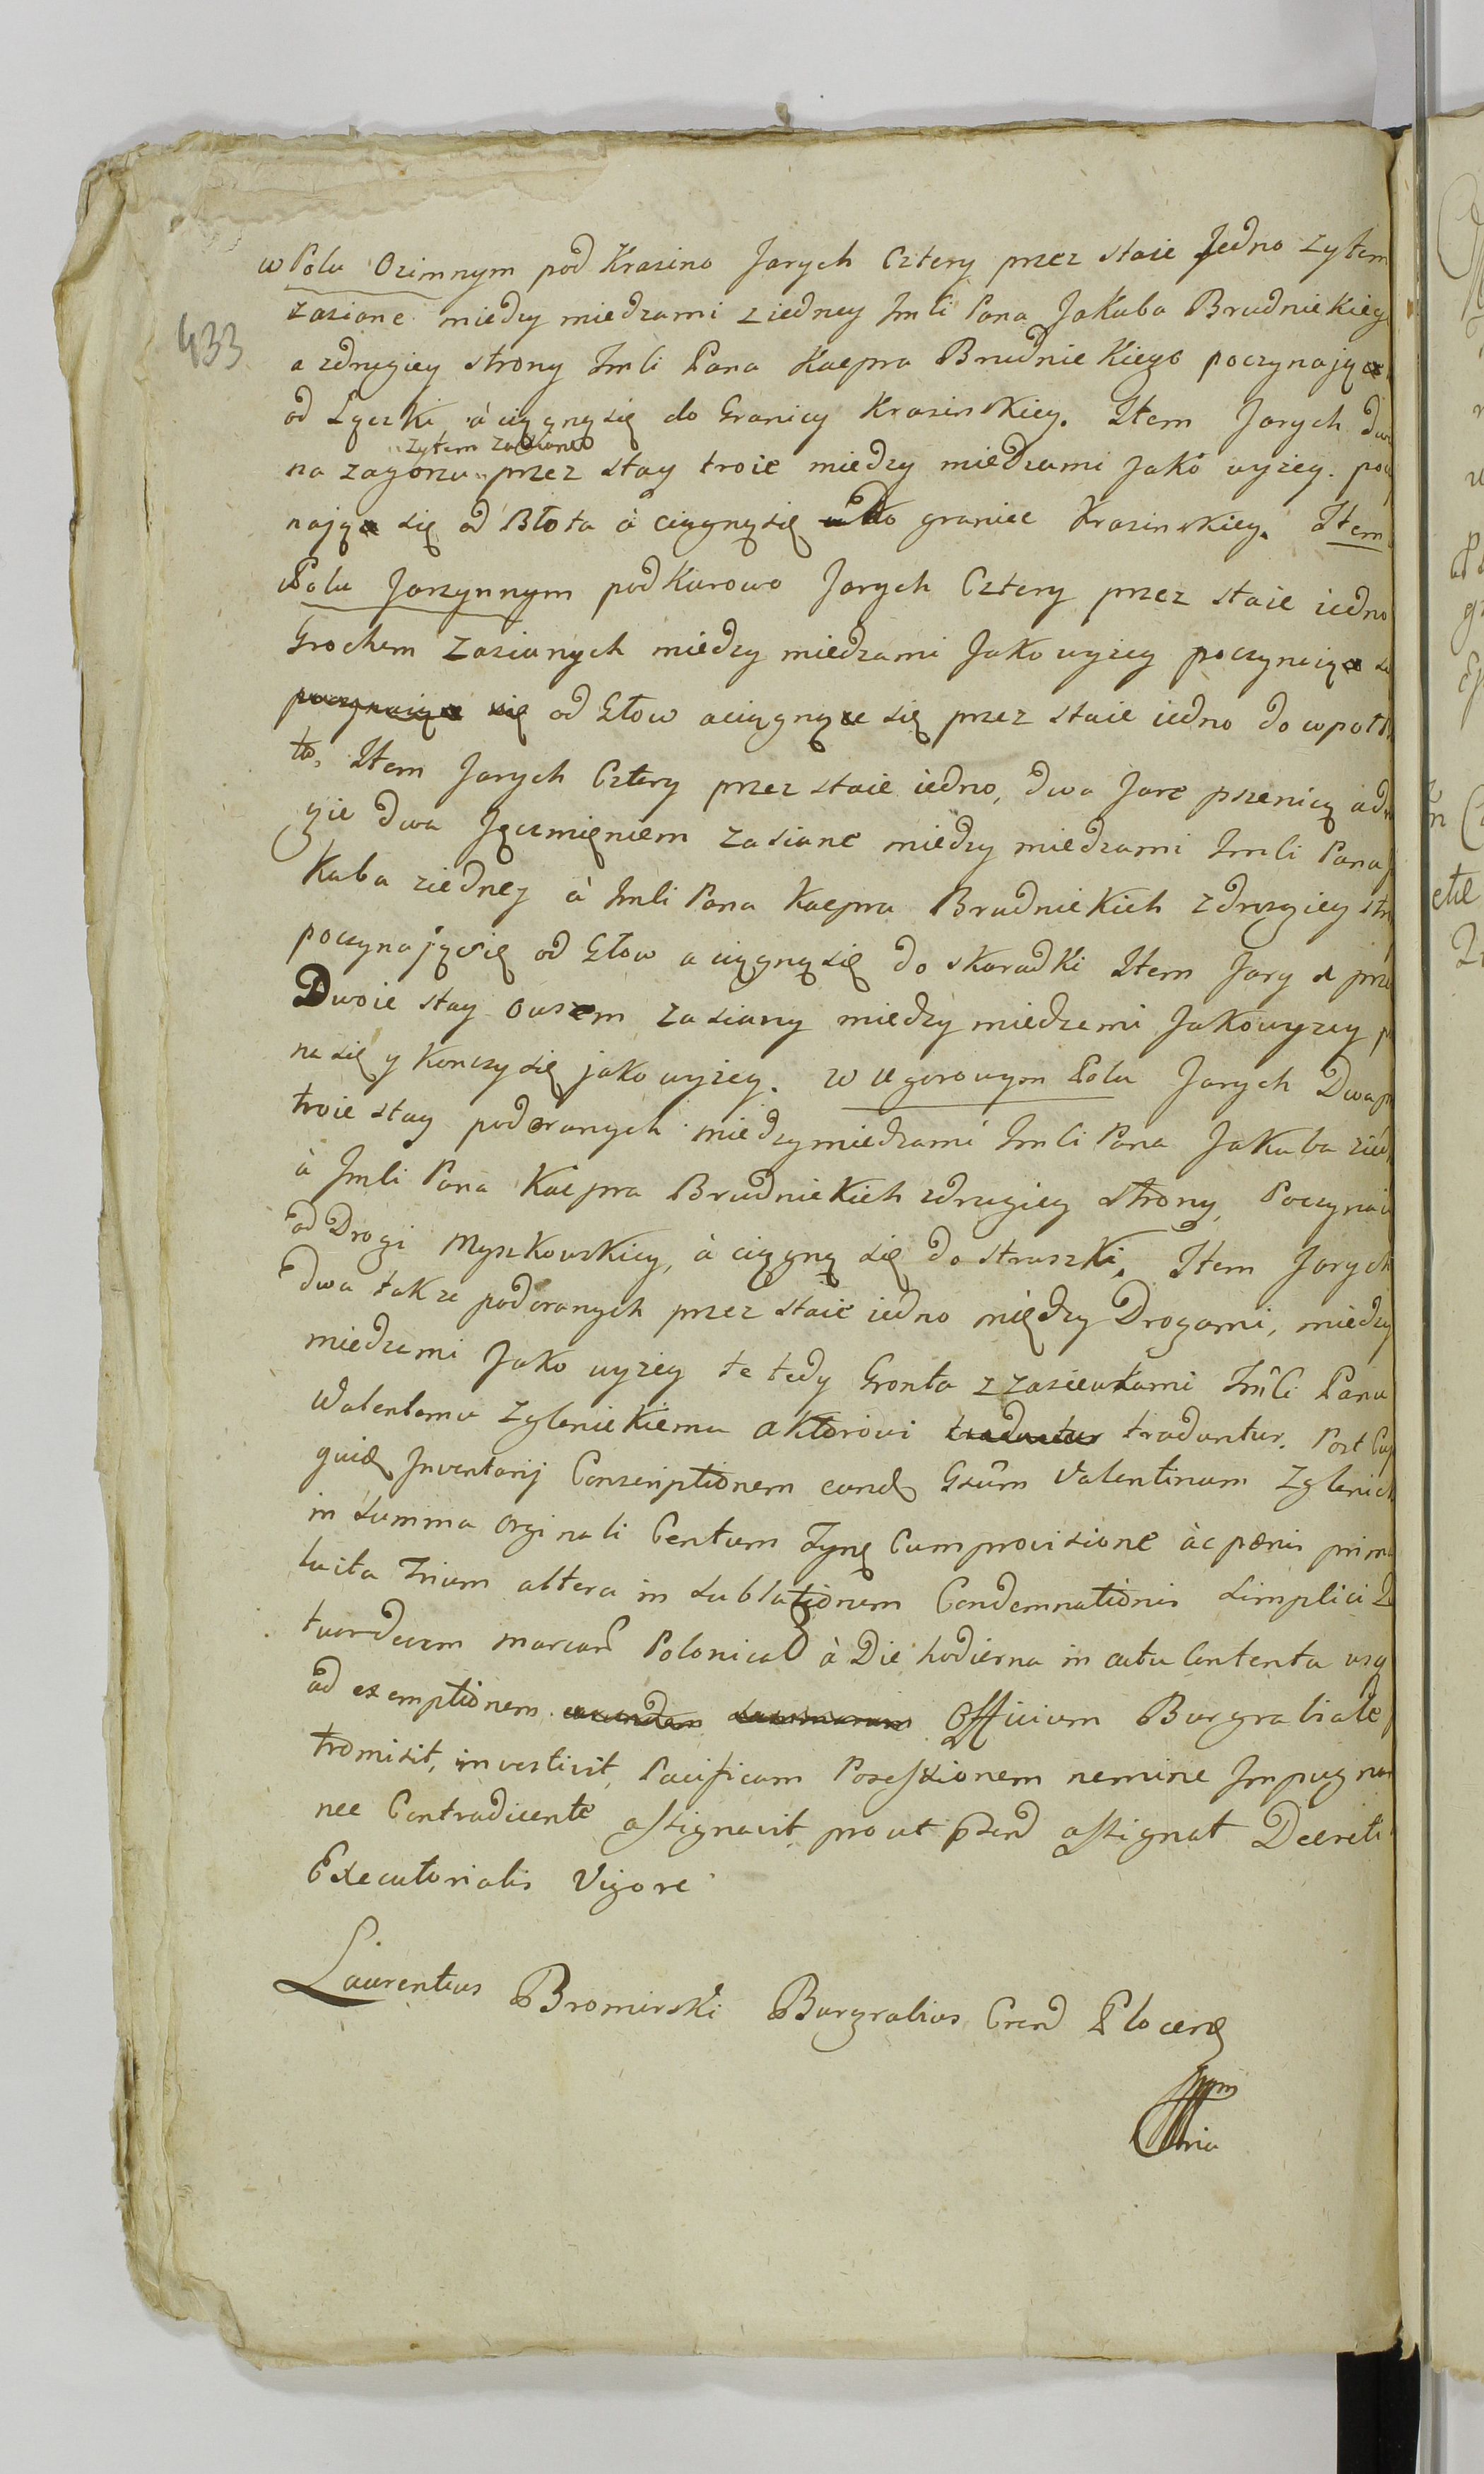 w Polu Ozimnym pod Krasino Jarych Cztery przez staie Jedno zytem
433
zasiane miedzy miedzami z iedney Jmli Pana Jakuba Brudnickieg
a zdrugiey strony Jmli Pana Kacpra Brudnickiego poczynaiąc
od Łączki, à ciągną się do Granicy Krasinskiey. Item Jarych dwa
zytem zasiane
na zagorzu przez stay troie miedzy miedzami Jako wyżey. pocy
nają się od Błota à ciągną się do graniec Krasinskiey. Item
w Polu Jarzynnym pod Kurowo Jarych Cztery przez staie iedno
Grochem zasianych miedzy miedzami Jako wyżey poczynaią
poczynaią się od Głow a ciągną się przez staie iedno do wpoł
to, Item Jarych Cztery przez staie iedno, dwa Jare pszenicą a dru
gie dwa Jęczmięniem zasiane miedzy miedzami Jmli Pana Ja
Kuba ziedney à Jmli Pana Kacpra Brudnickich zdrugiey stro
poczynają się od Głow a ciągną się do skaradki Item Jary 1 prze
Dwoie stay owsem zasiany miedzy miedzami Jako wyżey po
na się y Konczy się jako wyżey. w ugorowym Polu Jarych Dwa
troie stay podoranych miedzy miedzami Jmli Pana Jakuba zied
à Jmli Pana Kacpra Brudnickich zdrugiey strony, Poczynaią
od Drogi Myszkowskiey, à ciągną się do straszki. Item Jarych
dwa takze podoranych przez staie iedno między Drogami, miedzy
miedzami Jako wyżey te tedy Gronta z zasiewkami Jmli Panu
Walentemu Zglenickiemu aktorowi traduntur traduntur. Post
Inventarij Conscriptionem eund Gsum Valentinum Zglenick
in summa orginali Centum Tynf Cum provisione àc pœnis prima
lucta Trium altera in sublationem Condemnationis simplici
tuordecim marcar Polonical à Die hodierna in actu Contenta usq
ad exemptionem earundem summarum Officium Burgrabiale
tromisit, investivit, Pacificam Possessionem nemine Impugnan
nec Contradicente assignavit prout pserd assignat Decreti
Executorialis Vigore
Laurentius Bromirski Burgrabius Crend Plocens
mpria